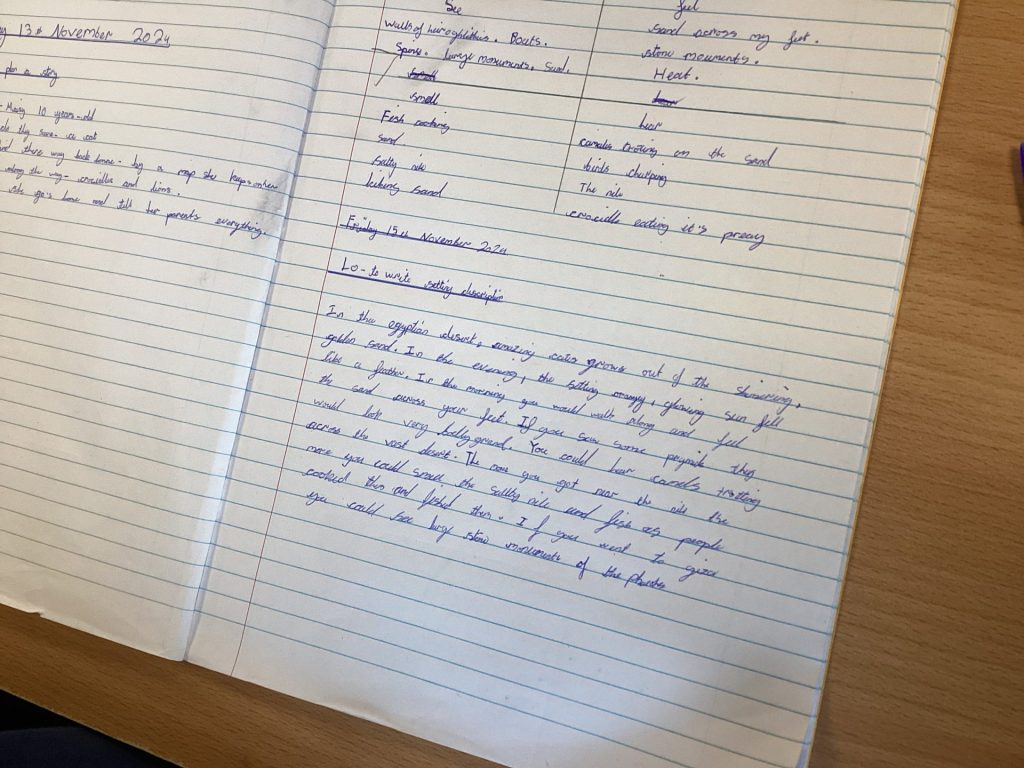 13th November 2024
plan a story
10 years-old
back home - by a map she keeps on her
along the way - crocidles and lions.
she go's home and tell her parents everything.
See
walls of hieroglithics. Boats.
large monuments. Sand.
smell
Fish cooking
sand.
salty nile
baking sand
feel
sand across my feet.
stone mouments.
Heat.
hear
camals troting on the sand
birds chirping
The nile
crocidle eating it's preay
Friday 15th November 2024
LO - to write setting description
In the egyptian desert, amazing grows out of the shimering,
golden sand. In the evening, the setting orangy, glowing sun fell
like a feather. In the morning you would walk along and feel
the sand across your feet. If you saw some they
would look very. You could hear camals trotting
across the vast desert. The more you got near the nile the
more you could smell the saltly nile and fish as people
cooked then and fished then. If you went to giza
you could see large stone monuments of the